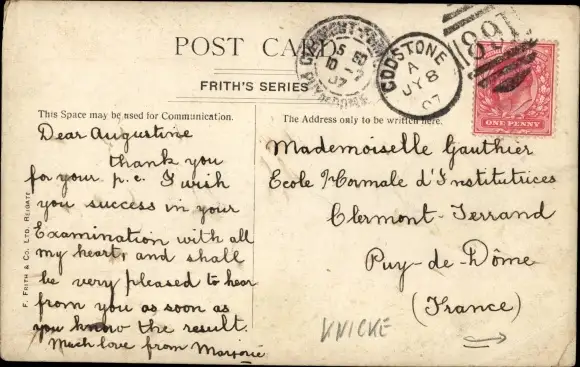 POST CARD
FRITH'S SERIES
This Space may be used for Communication.
The Address only to be written here.
Dear Augustine
thank you
for your p.c. I wish
you success in your
Examination with all
my heart, and shall
be very pleased to hear
from you as soon as
you know the result.
Much love from Marjorie
Mademoiselle Gauthier
Ecole Normale d'Institutrices
Clermont-Ferrand
Puy-de-Dôme
(France)
KNICKE
F. FRITH & CO. LTD. REIGATE
GODSTONE
A
JY 8
07
ONE PENNY